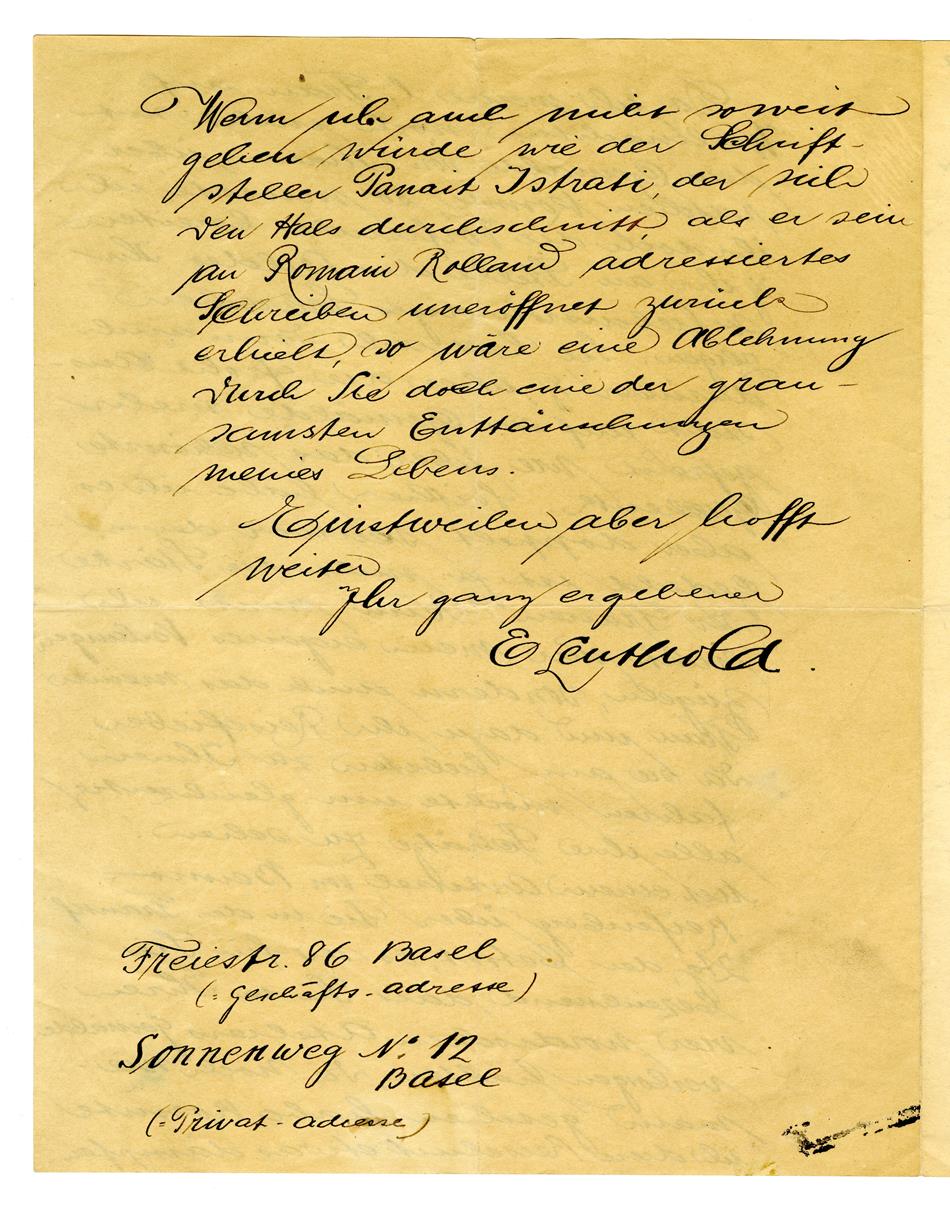 Wenn ich auch nicht soweit
gehen würde wie der Schrift-
steller Panait Istrati, der sich
den Hals durchschnitt, als er sein
an Romain Rolland adressiertes
Schreiben uneröffnet zurück
erhielt, so wäre eine Ablehnung
durch Sie doch eine der grau-
samsten Enttäuschungen
meines Lebens.
Einstweilen aber hofft
weiter
Ihr ganz ergebener
E Leuthold.
Freiestr. 86 Basel
(: Geschäfts-adresse)
Sonnenweg No. 12
Basel
(: Privat-adresse)